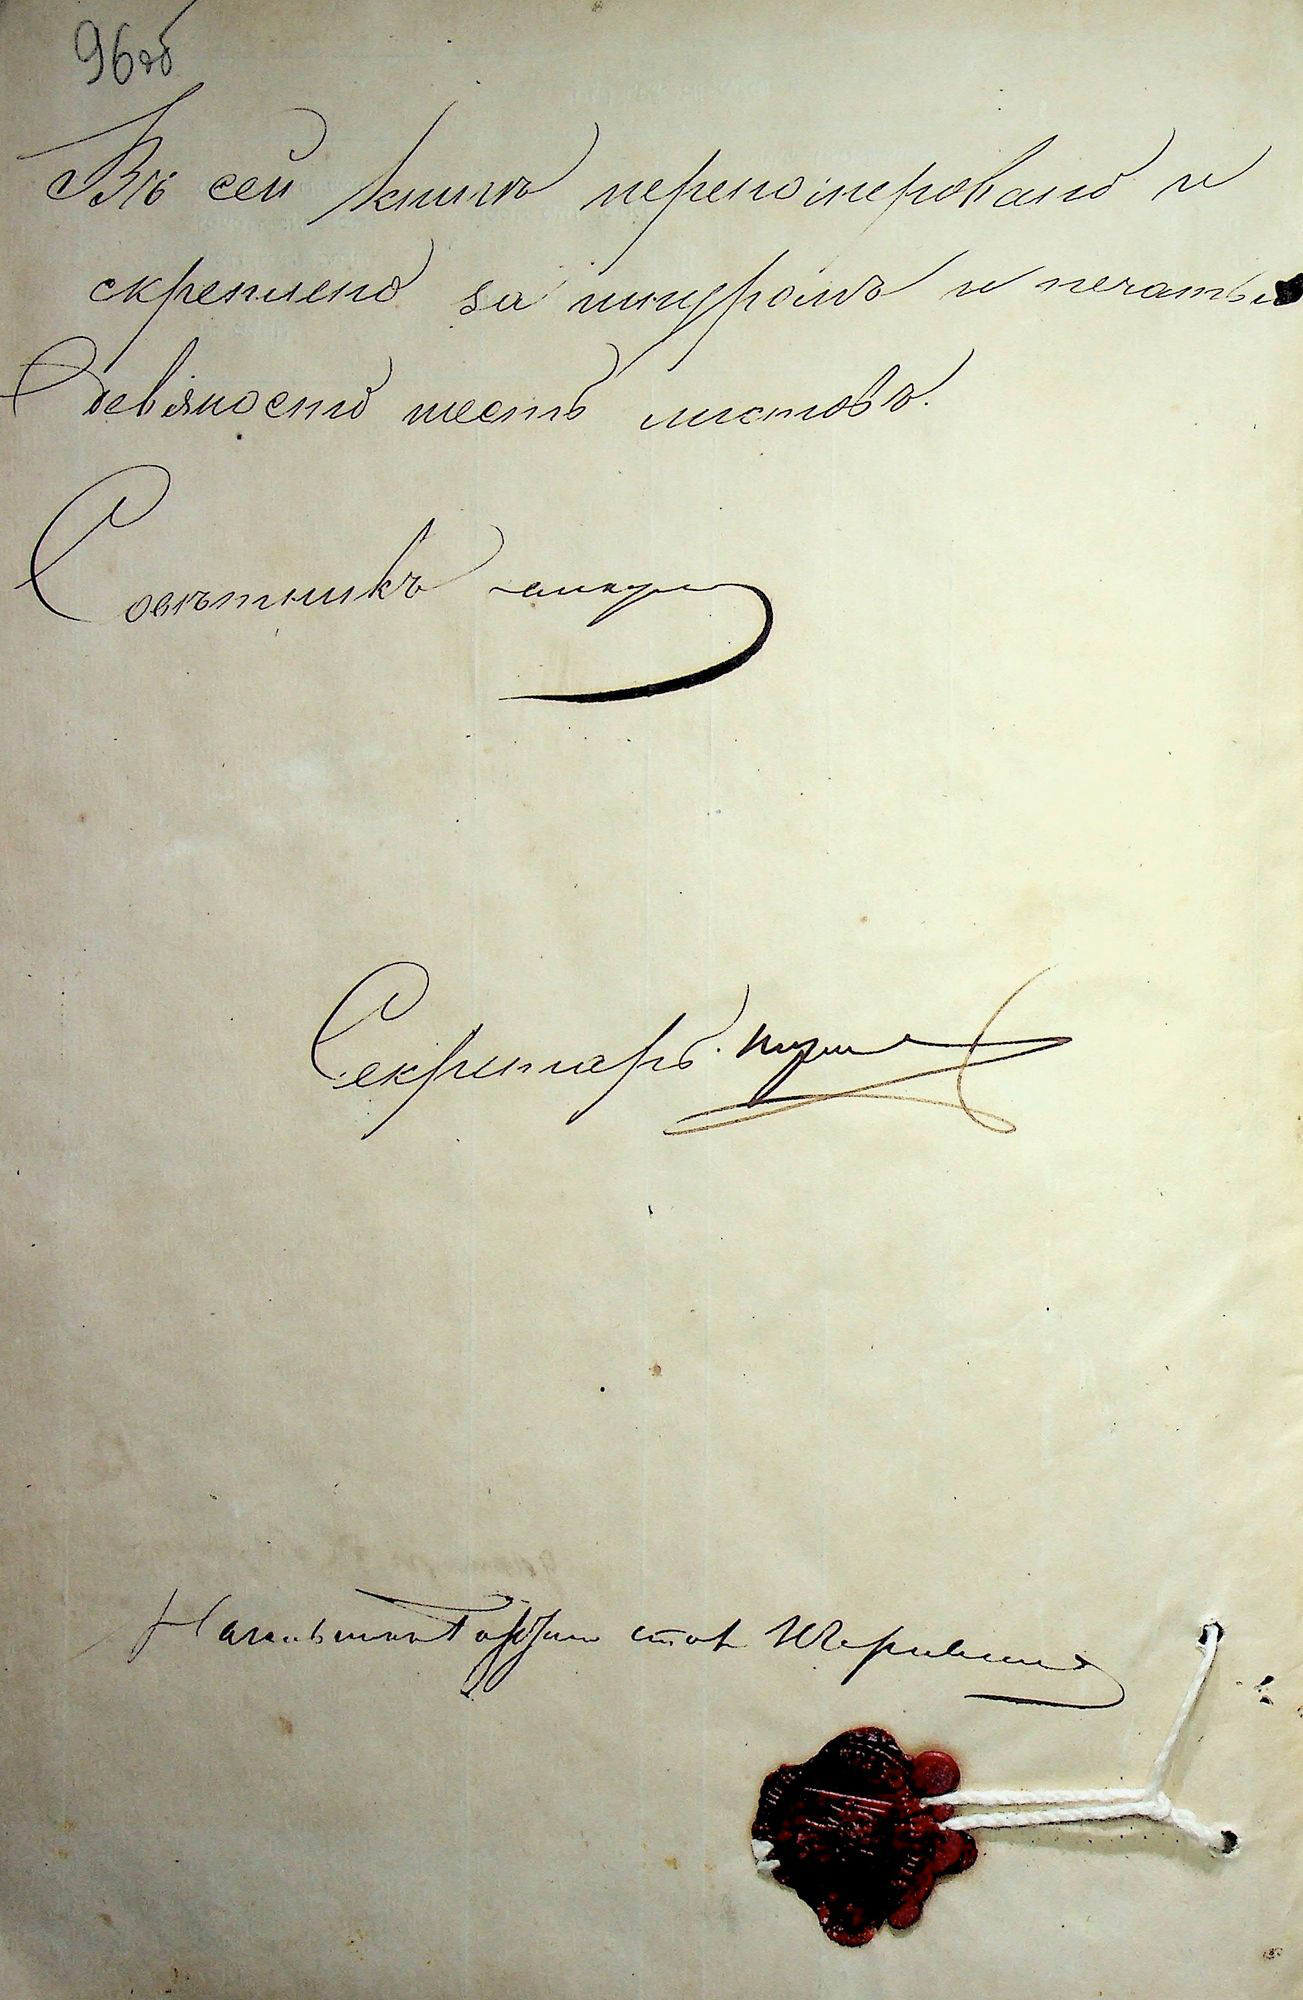 96 об
Въ сей книгѣ перенумеровано и
скреплено за шнуромъ и печатью
девяносто шесть листовъ.
Совѣтникъ
Секретарь
стол